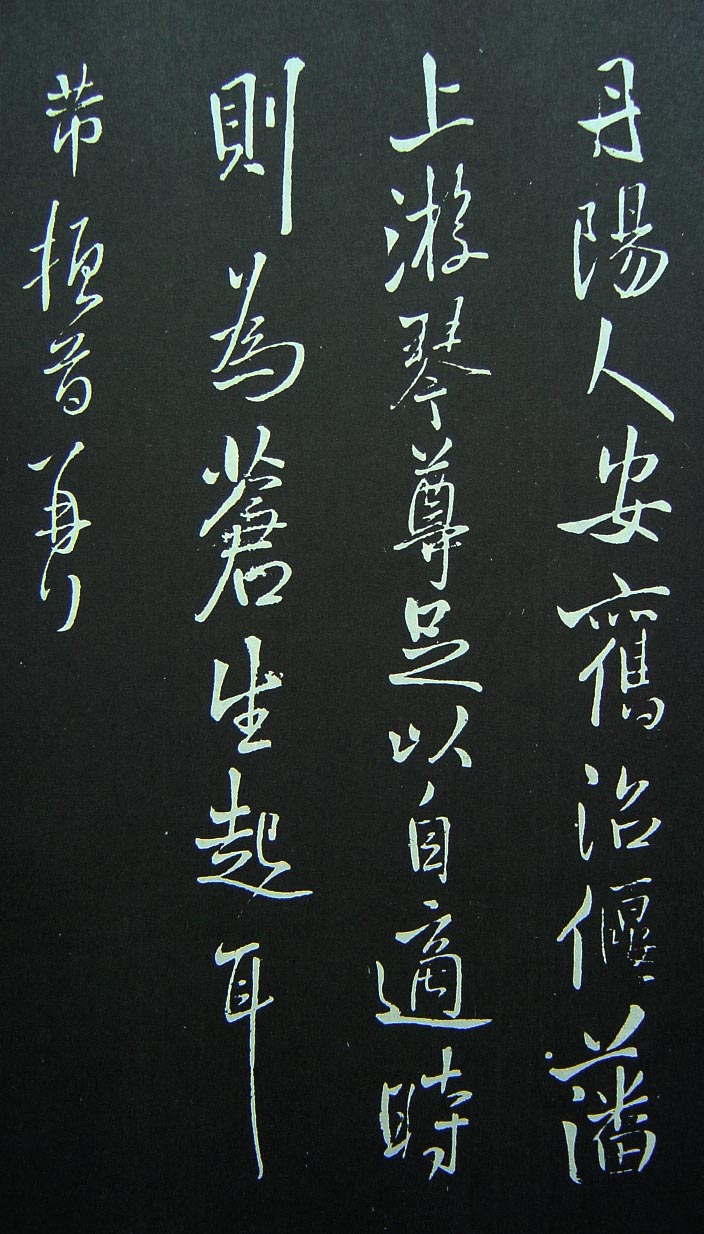 丹陽人安舊治偃藩
上游琴尊足以自適時
則為蒼生起耳
芾頓首再